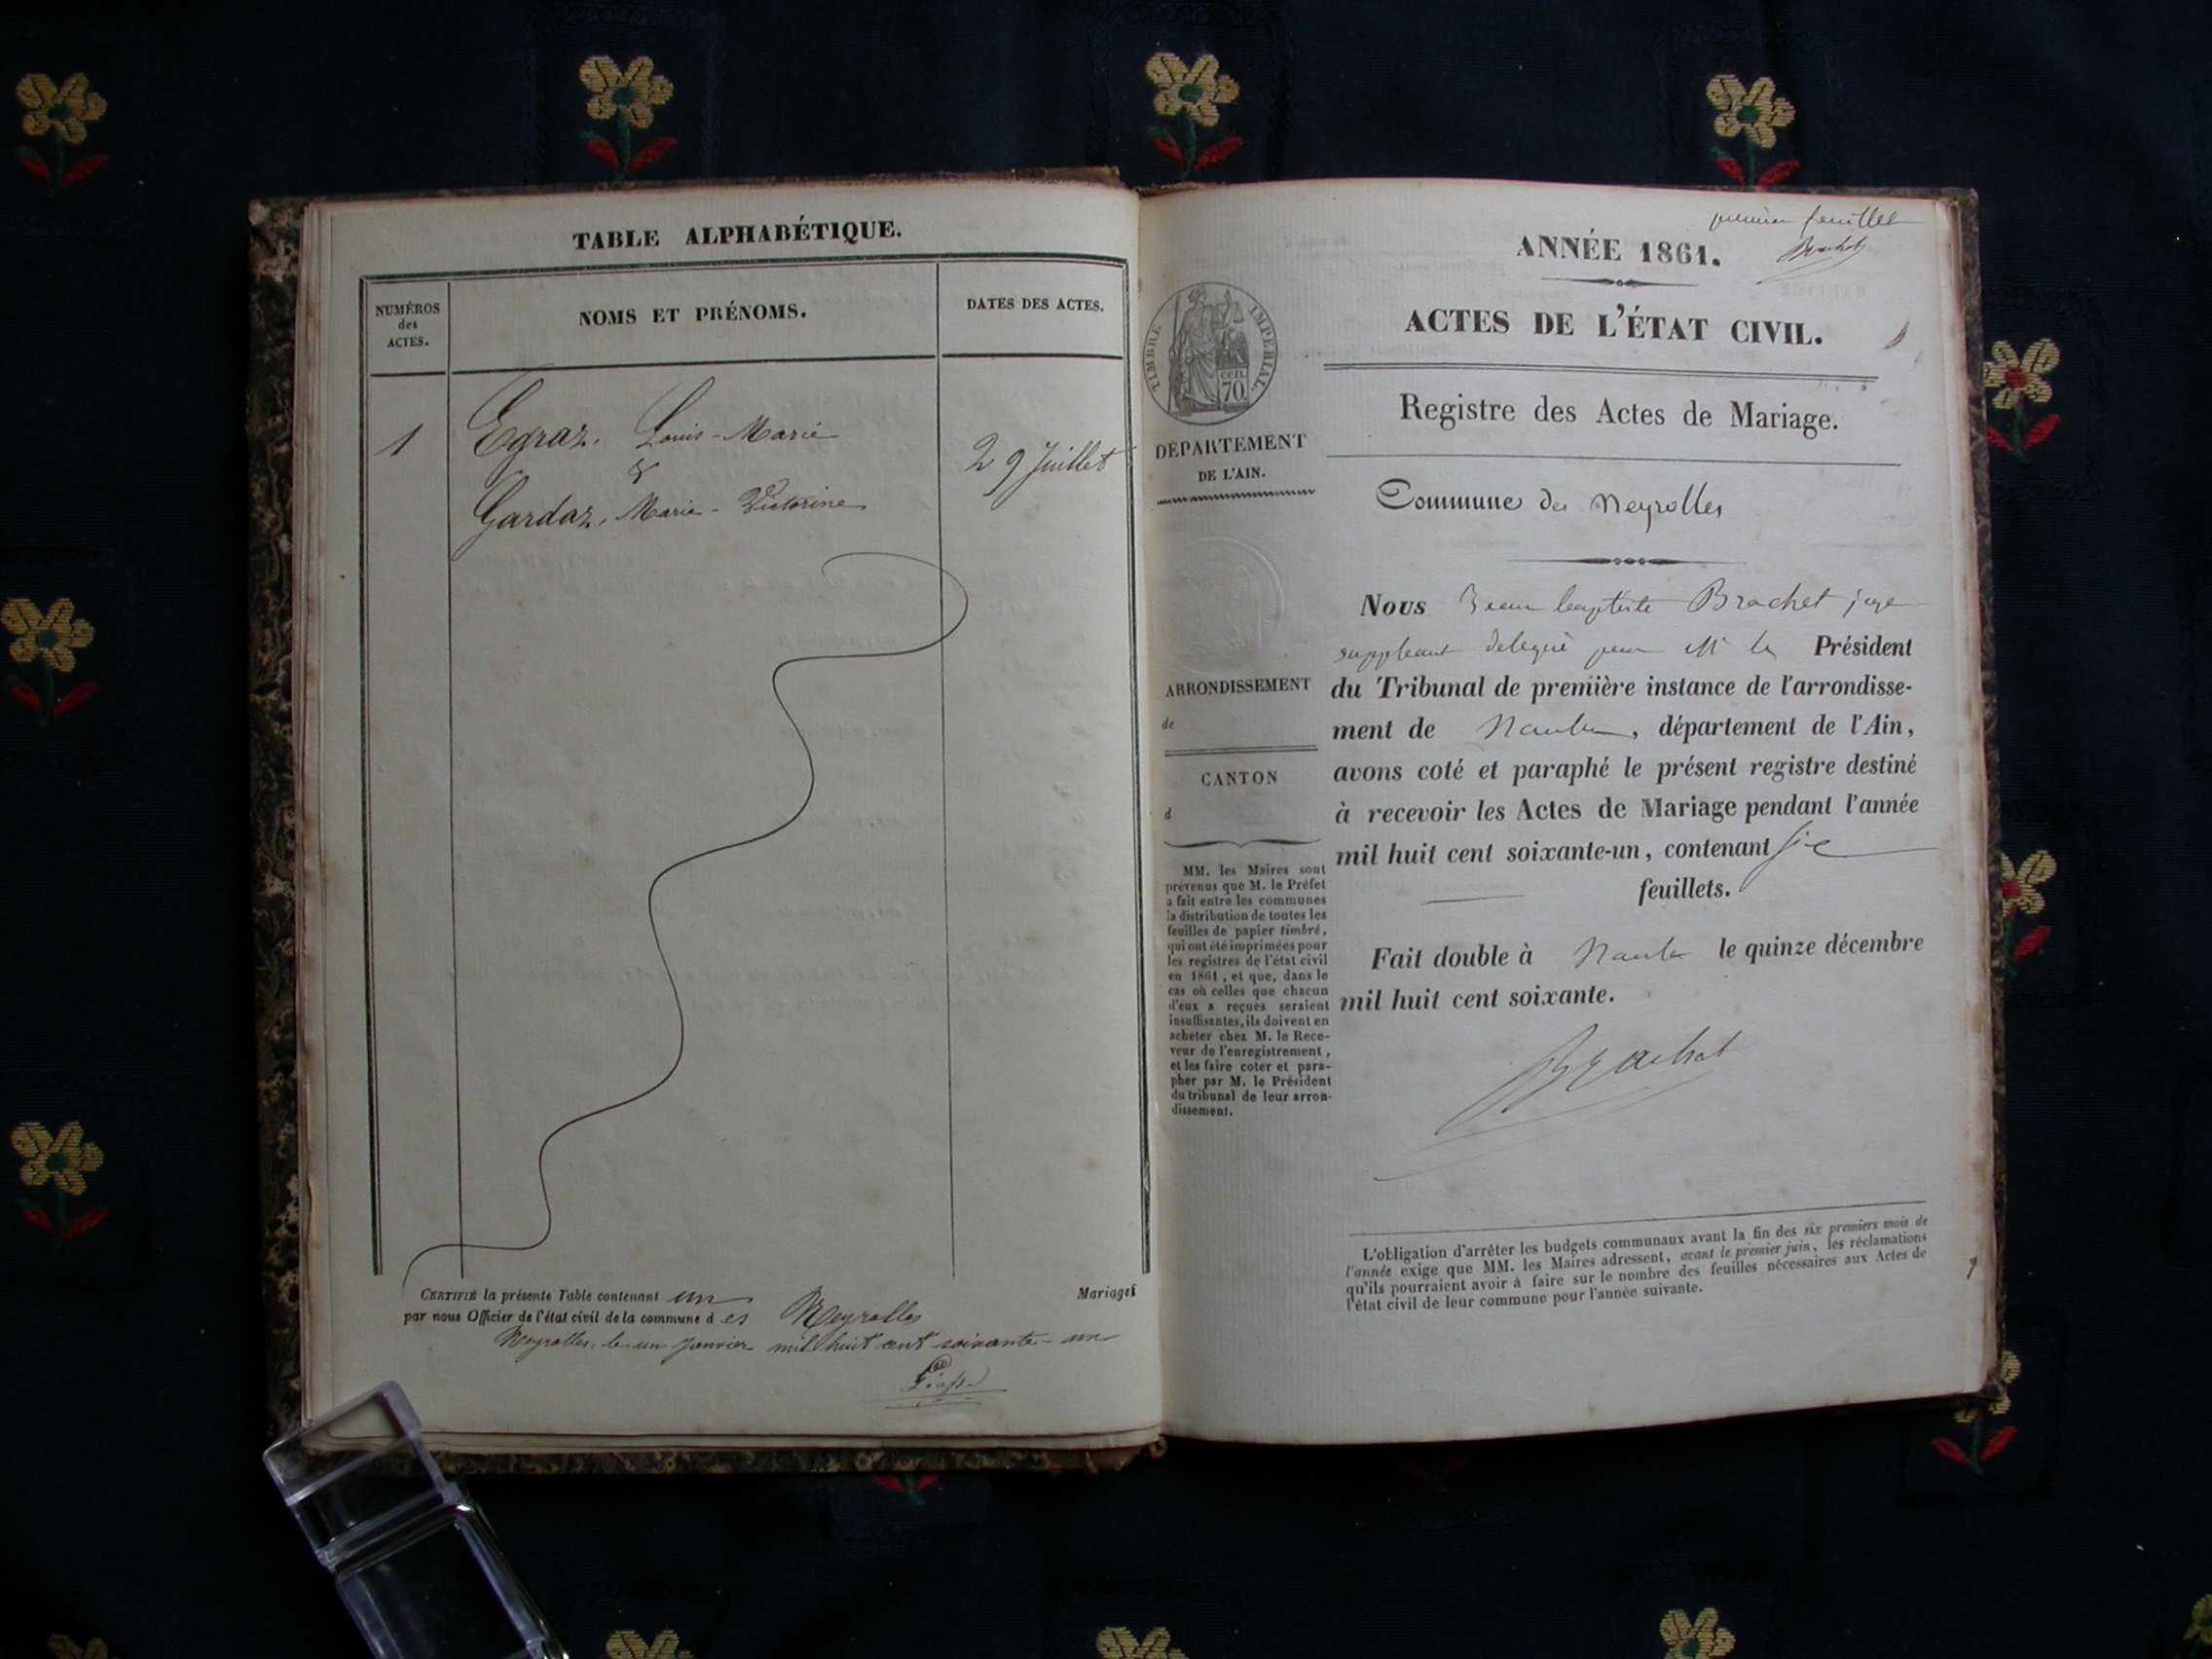 TABLE ALPHABÉTIQUE.
NUMÉROS
des
ACTES.
NOMS ET PRÉNOMS.
DATES DES ACTES.
1
Egraz, Louis-Marie
&
Gardaz, Marie-Victorine
29 Juillet
CERTIFIÉ la présente Table contenant un Mariages
par nous Officier de l'état civil de la commune des Neyrolles
Neyrolles, le un Janvier mil huit cent soixante-un
premier feuillet
Brachet
ANNÉE 1861.
ACTES DE L'ÉTAT CIVIL.
Registre des Actes de Mariage.
TIMBRE IMPÉRIAL.
CENT.
70
DÉPARTEMENT
DE L'AIN.
Commune des Neyrolles
ARRONDISSEMENT
de
CANTON
d
MM. les Maires sont
prévenus que M. le Préfet
a fait entre les communes
la distribution de toutes les
feuilles de papier timbré,
qui ont été imprimées pour
les registres de l'état civil
en 1861, et que, dans le
cas où celles que chacun
d'eux a reçues seraient
insuffisantes, ils doivent en
acheter chez M. le Rece-
veur de l'enregistrement,
et les faire coter et para-
pher par M. le Président
du tribunal de leur arron-
dissement.
Nous Jean baptiste Brachet juge
suppleant delegué par Mr le Président
du Tribunal de première instance de l'arrondisse-
ment de Nantua, département de l'Ain,
avons coté et paraphé le présent registre destiné
à recevoir les Actes de Mariage pendant l'année
mil huit cent soixante-un, contenant
feuillets.
Fait double à Nantua le quinze décembre
mil huit cent soixante.
Brachet
L'obligation d'arrêter les budgets communaux avant la fin des six premiers mois de
l'année exige que MM. les Maires adressent, avant le premier juin, les réclamations
qu'ils pourraient avoir à faire sur le nombre des feuilles nécessaires aux Actes de
l'état civil de leur commune pour l'année suivante.